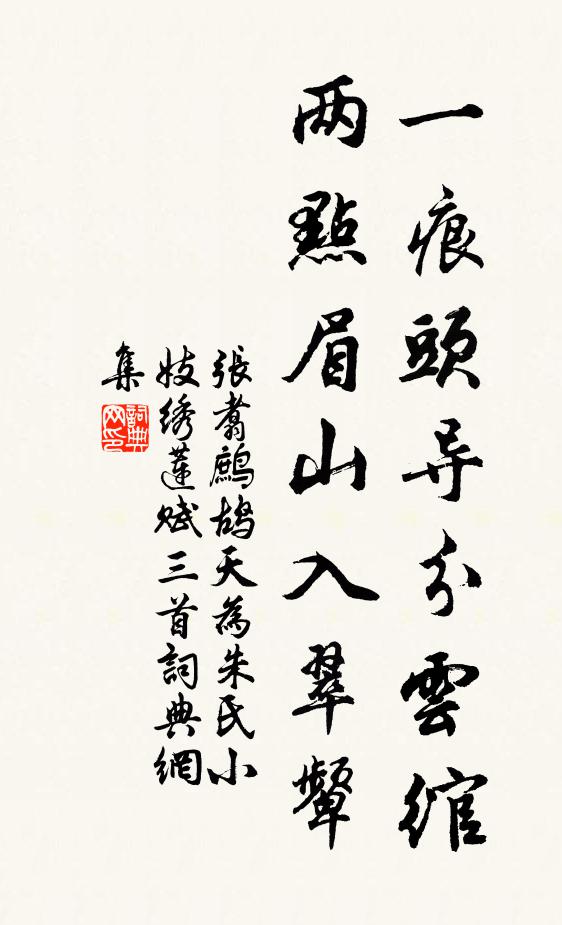 一痕頭导分雲綰
两點眉山入翠顰
張翥鷓鴣天為朱氏小
妓綉蓮赋三首詞典網
集
詞典网印